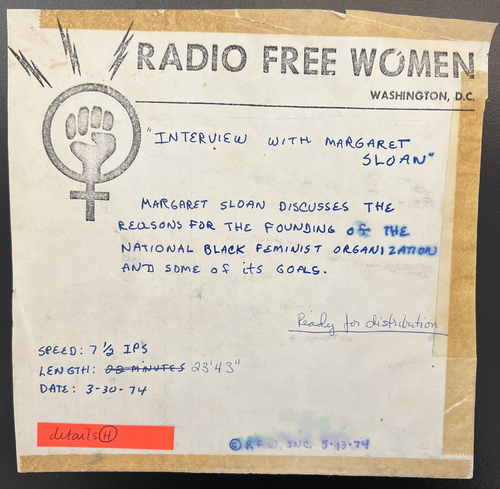 RADIO FREE WOMEN
WASHINGTON, D.C.
"INTERVIEW WITH MARGARET
SLOAN"
MARGARET SLOAN DISCUSSES THE
REASONS FOR THE FOUNDING OF THE
NATIONAL BLACK FEMINIST ORGANIZATION
AND SOME OF ITS GOALS.
Ready for distribution
SPEED: 7 1/2 IPS
LENGTH: 22 MINUTES 23'43"
DATE: 3-30-74
details H
© RFW, INC. 5-13-74